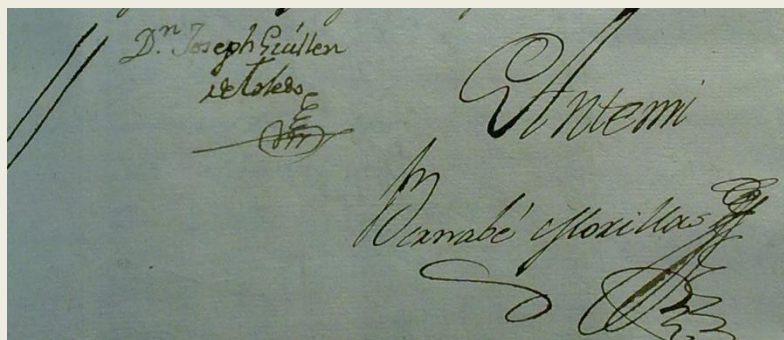 Dn Joseph Guillen
de Toledo
Ante mi
Bernabé Morillas